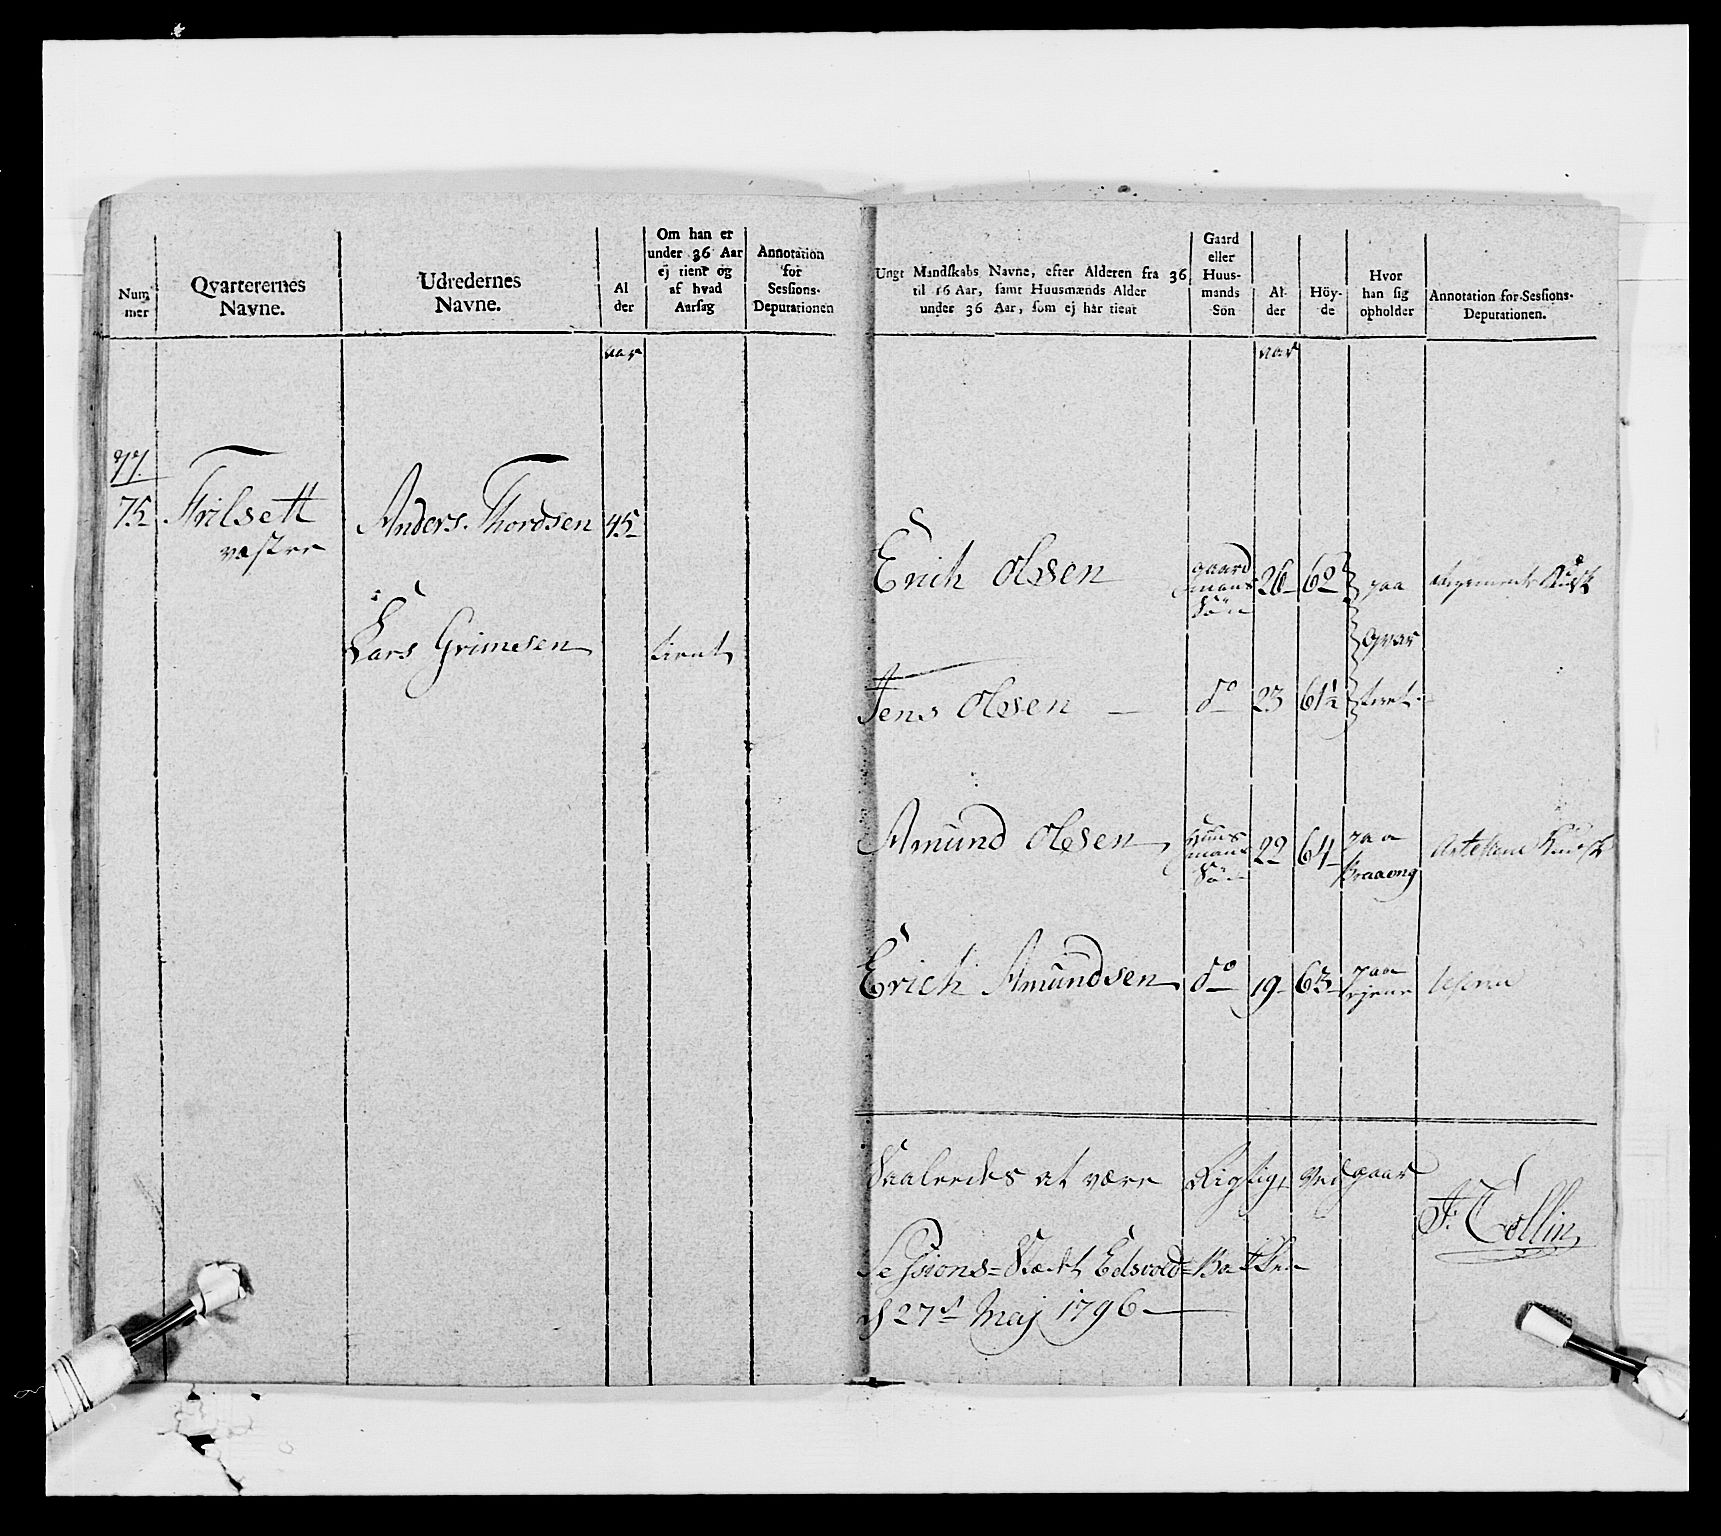 Num
mer
Qvarterernes
Navne.
Udredernes
Navne.
Al
der
Om han er
under 36 Aar
ej tient og
af hvad
Aarsag
Annotation
for
Sessions-
Deputationen
aar
77.
75 Trilsett Anders Thordsen 45
vestre
Lars Grimesen tient
Ungt Mandskabs Navne, efter Alderen fra 36
til 16 Aar, samt Huusmænds Alder
under 36 Aar, som ej har tient
Gaard
eller
Huus-
mands
Søn
Al-
der
Höy-
de
Hvor
han sig
opholder
Annotation for Sessions-
Deputationen.
aar
Erich Olsen gaard
mans
Søn
26 60 paa
Qvar
teret
Jens Olsen — do 23 61½
Amund Olsen huus
mans
Søn
22 64 paa
Erich Amundsen do 19 63 paa
Saaledes at være Rigtig, Vedgaar
F: Collin
Sessions-Stædet Edsvold-Bakken
d 27de Maj 1796